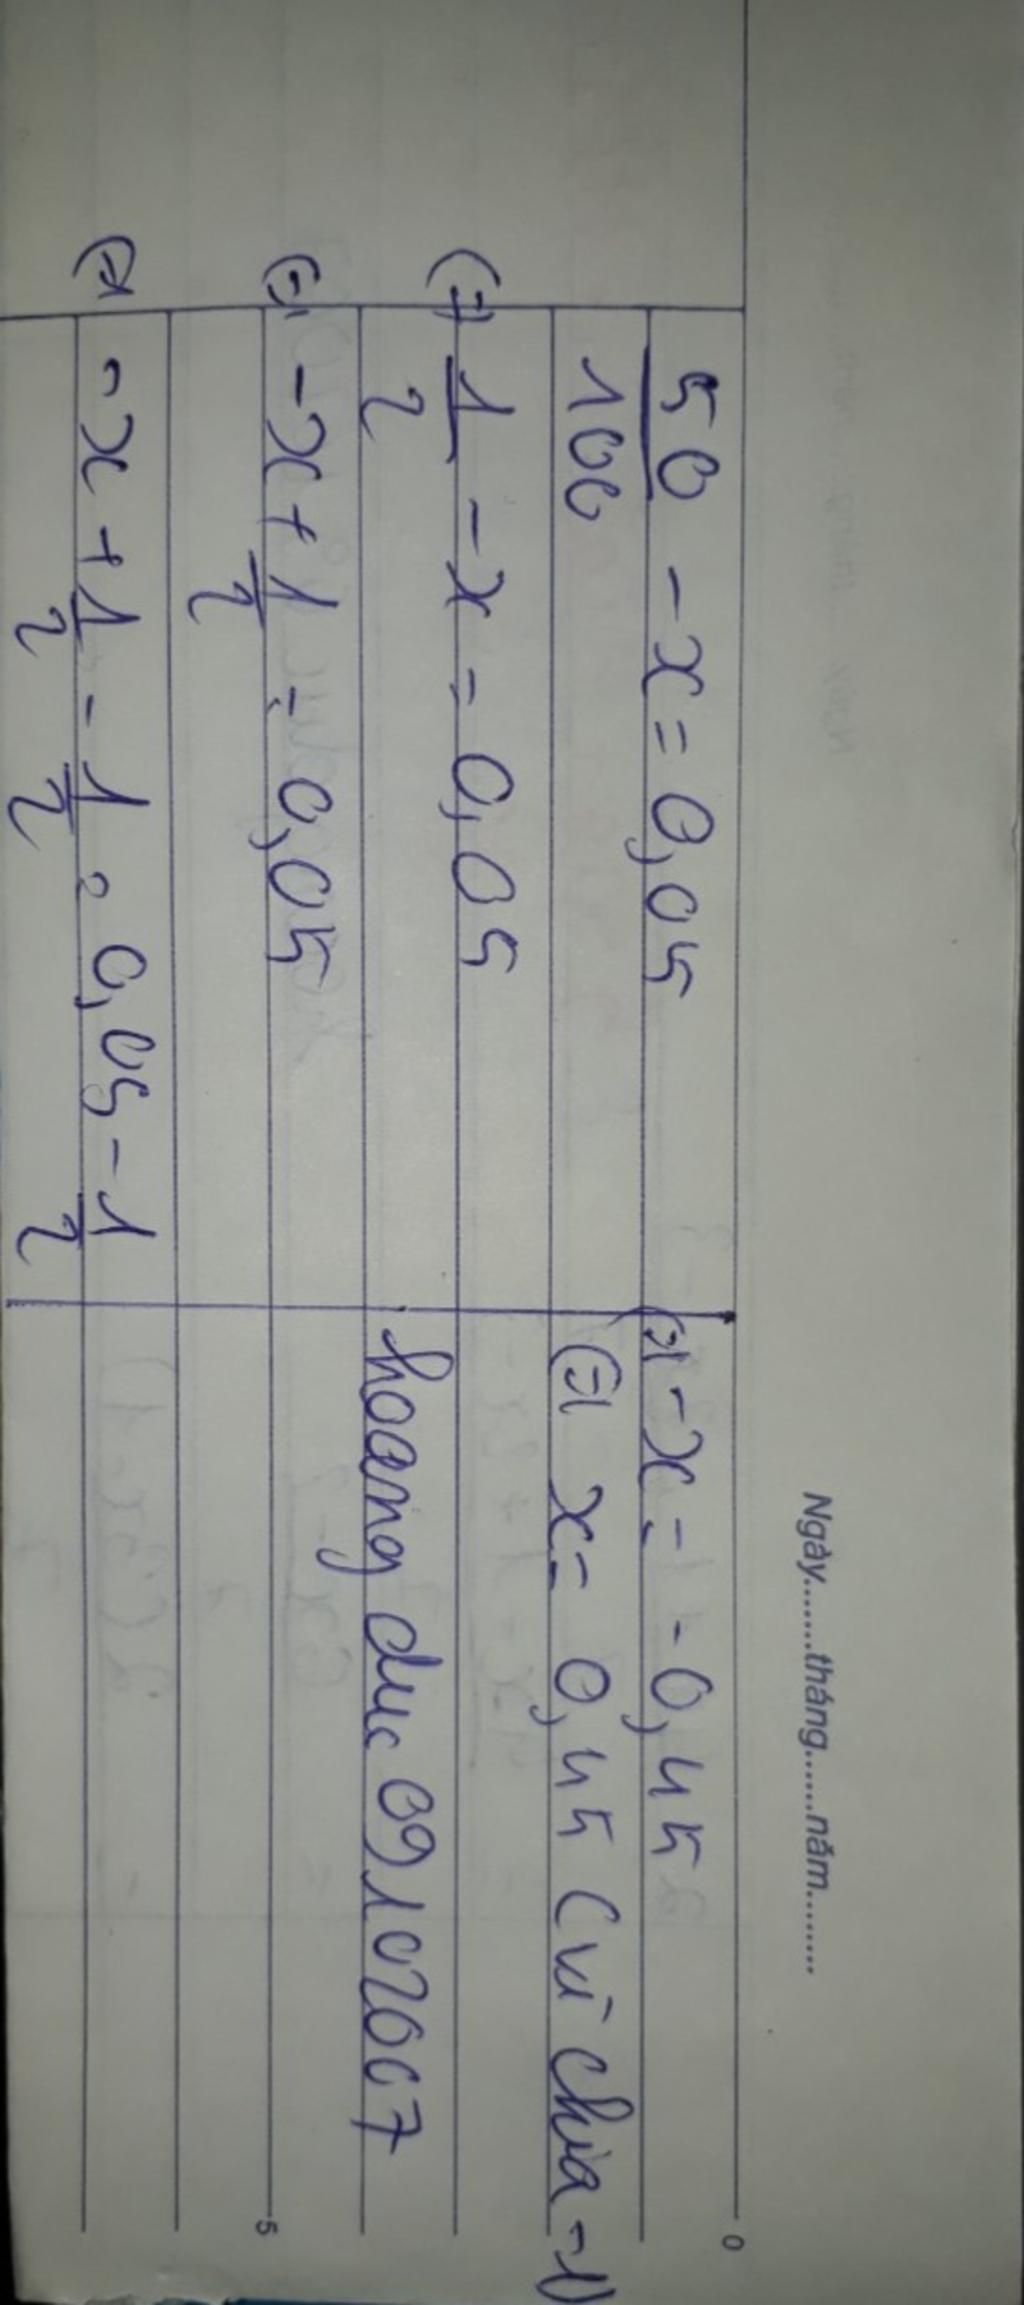 Ngày.......tháng.......năm........
50/100 - x = 0,05
(=) 1/2 - x = 0,05
(=) -x + 1/2 = 0,05
(=) -x + 1/2 - 1/2 = 0,05 - 1/2
(=) -x = -0,45
(=) x = 0,45 (vì chia -1)
hoang duc 09102007
0
5